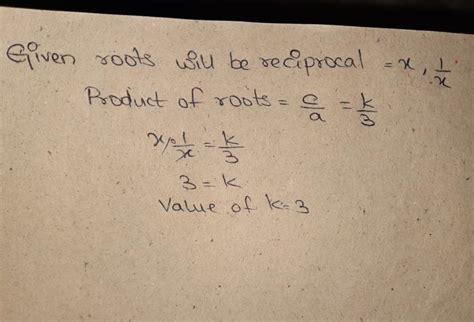 Given roots will be reciprocal = x, 1/x
Product of roots = c/a = k/3
x, 1/x = k/3
3 = k
Value of k=3